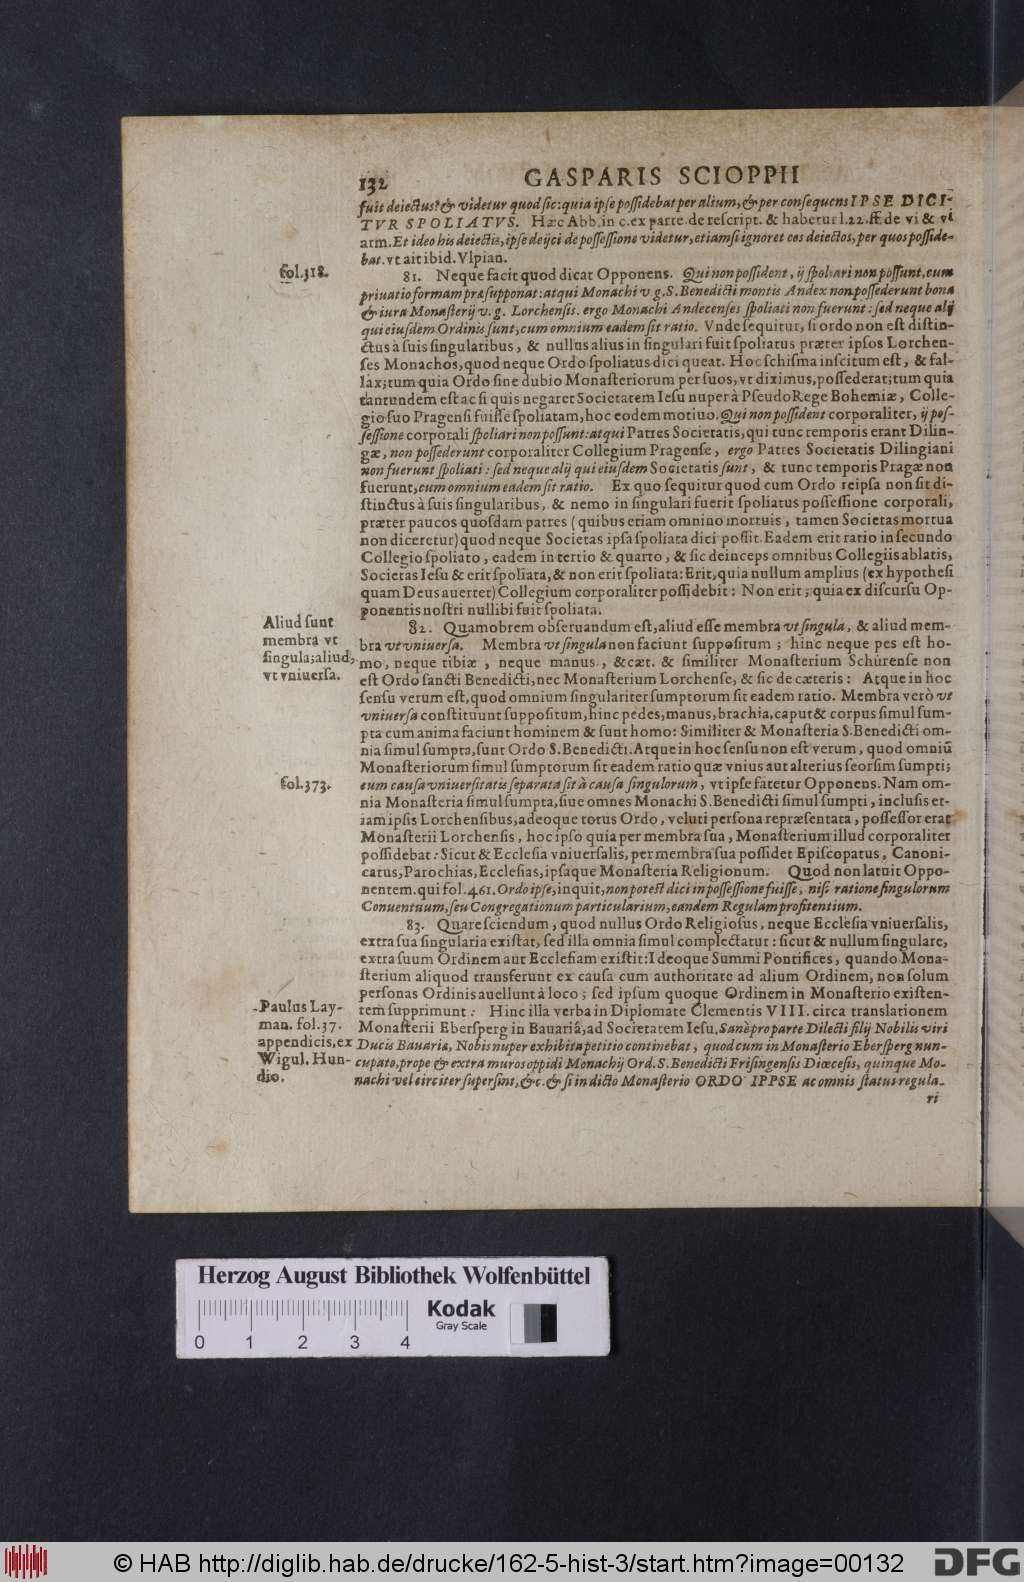 132 GASPARIS SCIOPPII
fuit deiectus? & videtur quod sic: quia ipse possidebat per alium, & per consequens IPSE DICI-
TVR SPOLIATVS. Hæc Abb. in c. ex parte. de rescript. & habetur l. 22. ff. de vi & vi
arm. Et ideo his deiectis, ipse deijci de possessione videtur, etiamsi ignoret eos deiectos, per quos posside-
bat. vt ait ibid. Vlpian.
fol. 318.
81. Neque facit quod dicat Opponens. Qui non possident, ij spoliari non possunt, cum
priuatio formam præsupponat: atqui Monachi v g. S. Benedicti montis Andex non possederunt bona
& iura Monasterij v. g. Lorchensis. ergo Monachi Andecenses spoliati non fuerunt: sed neque alij
qui eiusdem Ordinis sunt, cum omnium eadem sit ratio. Vnde sequitur, si ordo non est distin-
ctus à suis singularibus, & nullus alius in singulari fuit spoliatus præter ipsos Lorchen-
ses Monachos, quod neque Ordo spoliatus dici queat. Hoc schisma inscitum est, & fal-
lax; tum quia Ordo sine dubio Monasteriorum per suos, vt diximus, possederat; tum quia
tantundem est ac si quis negaret Societatem Iesu nuper à Pseudo Rege Bohemiæ, Colle-
gio suo Pragensi fuisse spoliatam, hoc eodem motiuo. Qui non possident corporaliter, ij pos-
sessione corporali spoliari non possunt: atqui Patres Societatis, qui tunc temporis erant Dilin-
gæ, non possederunt corporaliter Collegium Pragense, ergo Patres Societatis Dilingiani
non fuerunt spoliati: sed neque alij qui eiusdem Societatis sunt, & tunc temporis Pragæ non
fuerunt, cum omnium eadem sit ratio. Ex quo sequitur quod cum Ordo reipsa non sit di-
stinctus à suis singularibus, & nemo in singulari fuerit spoliatus possessione corporali,
præter paucos quosdam patres (quibus etiam omnino mortuis, tamen Societas mortua
non diceretur) quod neque Societas ipsa spoliata dici possit. Eadem erit ratio in secundo
Collegio spoliato, eadem in tertio & quarto, & sic deinceps omnibus Collegiis ablatis,
Societas Iesu & erit spoliata, & non erit spoliata: Erit, quia nullum amplius (ex hypothesi
quam Deus auertet) Collegium corporaliter possidebit: Non erit; quia ex discursu Op-
ponentis nostri nullibi fuit spoliata.
Aliud sunt
membra vt
singula; aliud,
vt vniuersa.
82. Quamobrem obseruandum est, aliud esse membra vt singula, & aliud mem-
bra vt vniuersa. Membra vt singula non faciunt suppositum; hinc neque pes est ho-
mo, neque tibiæ, neque manus, & cæt. & similiter Monasterium Schûrense non
est Ordo sancti Benedicti, nec Monasterium Lorchense, & sic de cæteris: Atque in hoc
sensu verum est, quod omnium singulariter sumptorum sit eadem ratio. Membra verò vt
vniuersa constituunt suppositum, hinc pedes, manus, brachia, caput & corpus simul sum-
pta cum anima faciunt hominem & sunt homo: Similiter & Monasteria S. Benedicti om-
nia simul sumpta, sunt Ordo S. Benedicti. Atque in hoc sensu non est verum, quod omniū
Monasteriorum simul sumptorum sit eadem ratio quæ vnius aut alterius seorsim sumpti;
fol. 373.
eum causa vniuersitatis separata sit à causa singulorum, vt ipse fatetur Opponens. Nam om-
nia Monasteria simul sumpta, siue omnes Monachi S. Benedicti simul sumpti, inclusis et-
iam ipsis Lorchensibus, adeoque totus Ordo, veluti persona repræsentata, possessor erat
Monasterii Lorchensis, hoc ipso quia per membra sua, Monasterium illud corporaliter
possidebat: Sicut & Ecclesia vniuersalis, per membra sua possidet Episcopatus, Canoni-
catus, Parochias, Ecclesias, ipsaque Monasteria Religionum. Quod non latuit Oppo-
nentem. qui fol. 461. Ordo ipse, inquit, non potest dici in possessione fuisse, nisi ratione singulorum
Conuentuum, seu Congregationum particularium, eandem Regulam profitentium.
83. Quare sciendum, quod nullus Ordo Religiosus, neque Ecclesia vniuersalis,
extra sua singularia existat, sed illa omnia simul complectatur: sicut & nullum singulare,
extra suum Ordinem aut Ecclesiam existit: Ideoque Summi Pontifices, quando Mona-
sterium aliquod transferunt ex causa cum authoritate ad alium Ordinem, non solum
personas Ordinis auellunt à loco; sed ipsum quoque Ordinem in Monasterio existen-
Paulus Lay-
man. fol. 37.
appendicis, ex
Wigul. Hun-
dio.
tem supprimunt: Hinc illa verba in Diplomate Clementis VIII. circa translationem
Monasterii Ebersperg in Bauariâ, ad Societatem Iesu. Sanè pro parte Dilecti filij Nobilis viri
Ducis Bauariæ, Nobis nuper exhibita petitio continebat, quod cum in Monasterio Ebersperg nun-
cupato, prope & extra muros oppidi Monachij Ord. S. Benedicti Frisingensis Diœcesis, quinque Mo-
nachi vel circiter supersint, &c. & si in dicto Monasterio ORDO IPPSE ac omnis status regula-
ri
Herzog August Bibliothek Wolfenbüttel
0 1 2 3 4
Kodak
Gray Scale
© HAB http://diglib.hab.de/drucke/162-5-hist-3/start.htm?image=00132
DFG